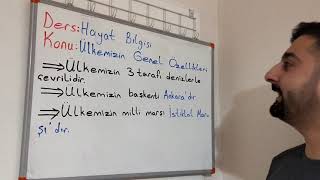 Ders:Hayat Bilgisi
Konu:Ülkemizin Genel Özellikleri
⇒Ülkemizin 3 tarafı denizlerle
çevrilidir.
⇒Ülkemizin başkenti Ankara'dır.
⇒Ülkemizin milli marşı İstiklal Mar-
şı'dır.